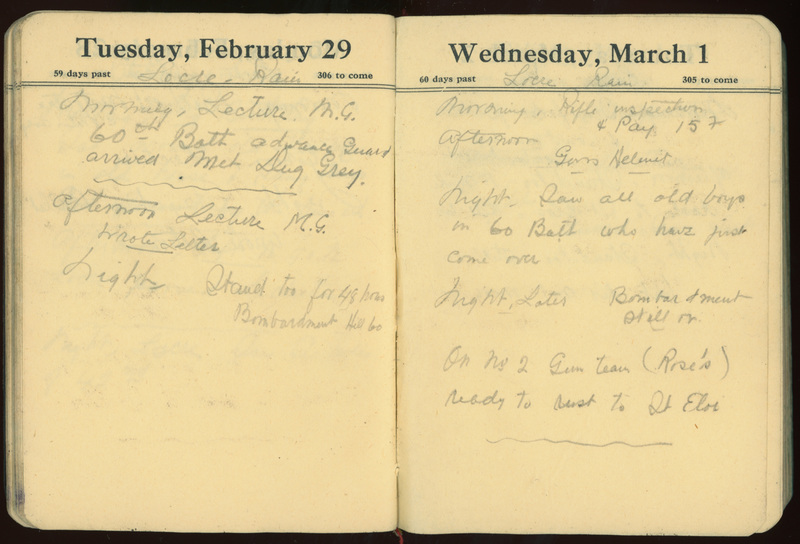 Tuesday, February 29
59 days past 306 to come
Locre - Rain
Morning, Lecture M.G.
60th Batt advance Guard
arrived Met Dug Grey.
Afternoon Lecture M.G.
Wrote Letter
Night - Stand too for 48 hours
Bombardment Hill 60
Wednesday, March 1
60 days past 305 to come
Locre Rain
Morning, Rifle inspection
& Pay, 15 F
Afternoon
Goos Helmit
Night - Saw all old boys
in 60 Batt who have just
come over
Night, Later Bombardment
still on.
On No 2 Gun team (Rose's)
ready to rust to St Eloi